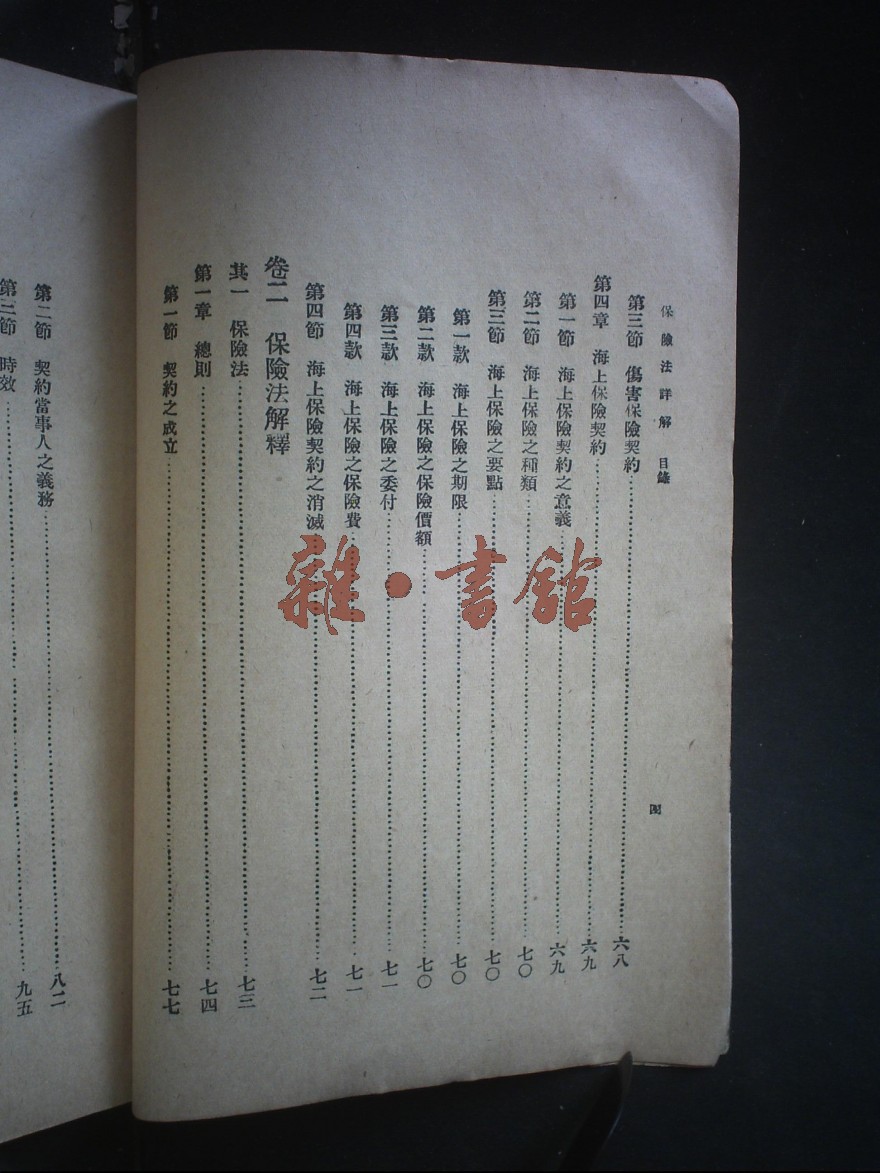 保險法詳解 目錄
四
第三節 傷害保險契約……六八
第四章 海上保險契約……六九
第一節 海上保險契約之意義……六九
第二節 海上保險之種類……七〇
第三節 海上保險之要點……七〇
第一款 海上保險之期限……七〇
第二款 海上保險之保險價額……七〇
第三款 海上保險之委付……七一
第四款 海上保險之保險費……七一
第四節 海上保險契約之消滅……七二
卷二 保險法解釋
其一 保險法……七三
第一章 總則……七四
第一節 契約之成立……七七
第二節 契約當事人之義務……八二
第三節 時效……九五
雜·書館